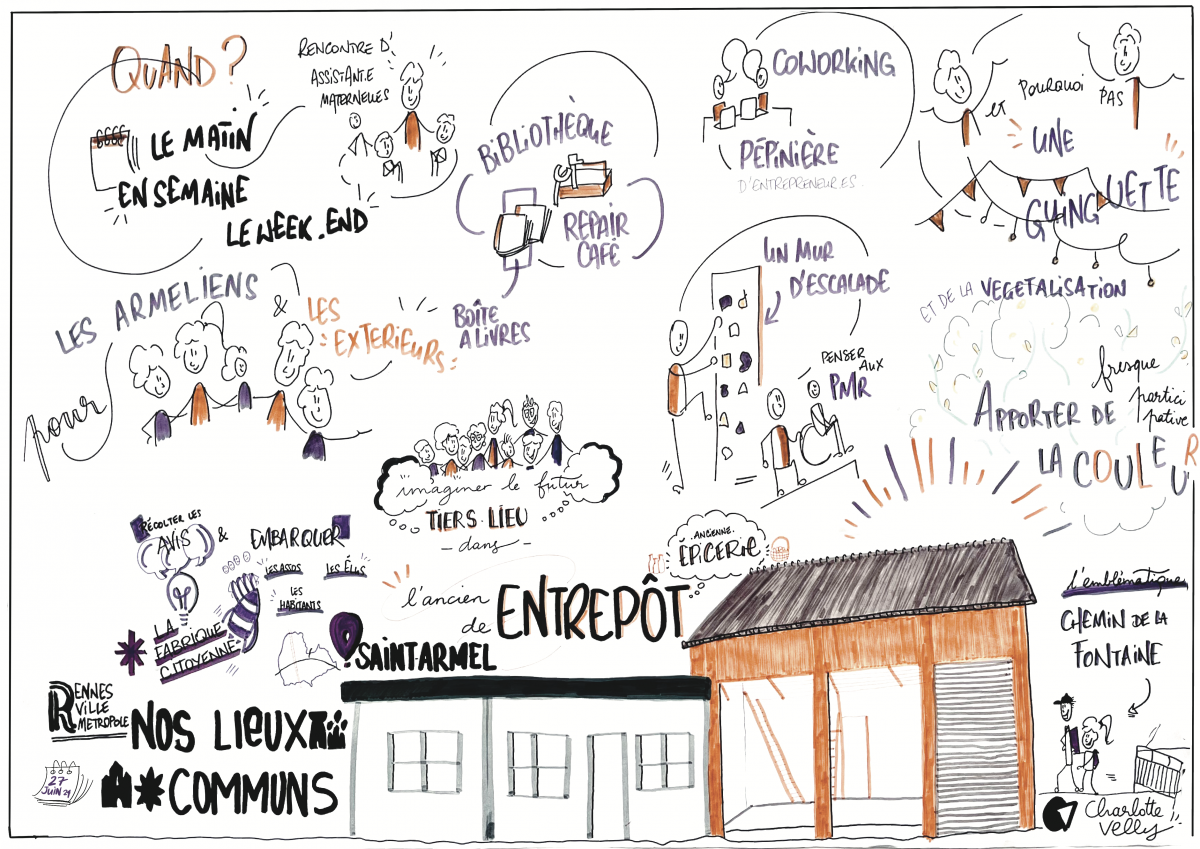 QUAND ?
LE MATIN
EN SEMAINE
LE WEEK.END
RENCONTRE D'
ASSISTANTE
MATERNELLES
BIBLIOTHÈQUE
REPAIR
CAFE
BOÎTE
A LIVRES
COWORKING
PÉPINIÈRE
D'ENTREPRENEUR.ES.
et POURQUOI PAS
UNE
GUINGUETTE
pour
LES ARMELIENS
& LES
EXTERIEURS
UN MUR
D'ESCALADE
PENSER
AUX
PMR
ET DE LA VEGETALISATION
fresque
partici
pative
APPORTER DE
LA COULEUR
imaginer le futur
TIERS.LIEU
- dans -
l'ancien
de ENTREPÔT
SAINT-ARMEL
ANCIENNE
ÉPICERIE
RÉCOLTER LES
AVIS & EMBARQUER
LES ASSOS
LES ÉLUS
LES
HABITANTS
LA
FABRIQUE
CITOYENNE
RENNES
VILLE
METROPOLE
NOS LIEUX
COMMUNS
27
JUIN 21
l'emblématique
CHEMIN DE LA
FONTAINE
Charlotte
Velly